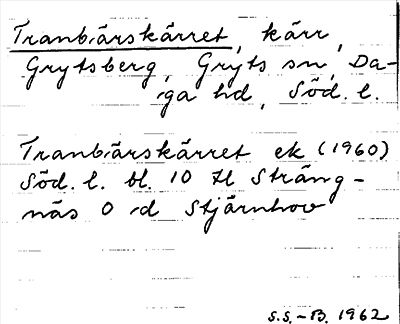 Tranbärskärret, kärr,
Grytsberg, Gryts sn, Da-
ga hd, Söd. l.
Tranbärskärret ek (1960)
Söd. l. bl. 10 Hl Sträng-
näs O d Stjärnhov
S.S.-B. 1962